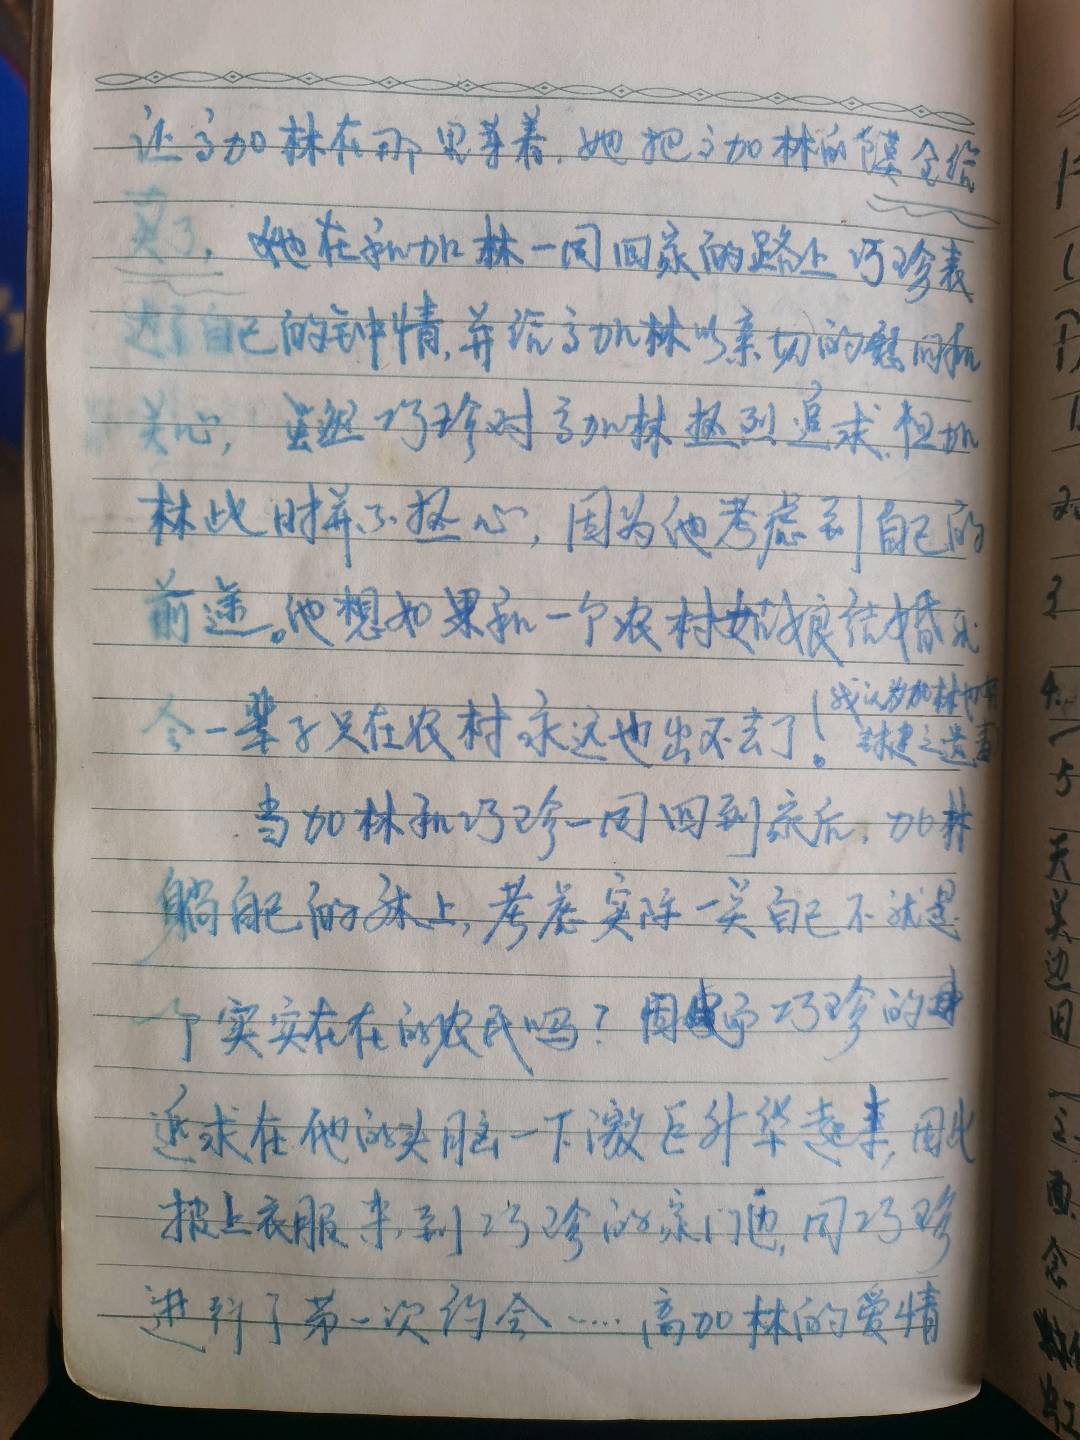 还高加林在那里等着，她把高加林的馍全给
卖了，她在和加林一同回家的路上巧珍表
达了自己的钟情，并给高加林以亲切的慰问和
关心，虽然巧珍对高加林热烈追求，但加
林此时并不热心，因为他考虑到自己的
前途。他想如果和一个农村姑娘结婚
会一辈子只在农村永远也出不去了！
我认为加林也有
封建之遗毒
当加林和巧珍一同回到家后，加林
躺自己的床上，考虑实际一关自己不就是
一个实实在在的农民吗？因而巧珍的
追求在他的头脑一下激巨升华起来，因此
披上衣服来到巧珍的家门边，同巧珍
进行了第一次约会……高加林的爱情